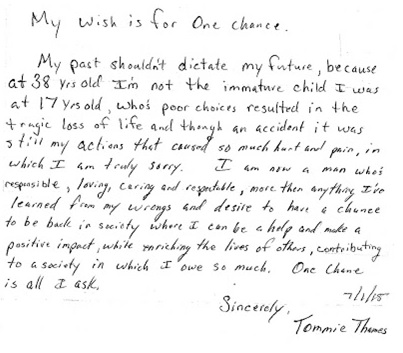 My Wish is for One chance.
My past shouldn't dictate my future, because
at 38 yrs old I'm not the immature child I was
at 17 yrs old, who's poor choices resulted in the
tragic loss of life and though an accident it was
still my actions that caused so much hurt and pain, in
which I am truly sorry. I am now a man who's
responsible, loving, caring and respectable, more then anything I've
learned from my wrongs and desire to have a chance
to be back in society where I can be a help and make a
positive impact, while enriching the lives of others, contributing
to a society in which I owe so much. One Chance
is all I ask.
7/1/15
Sincerely,
Tommie Thames